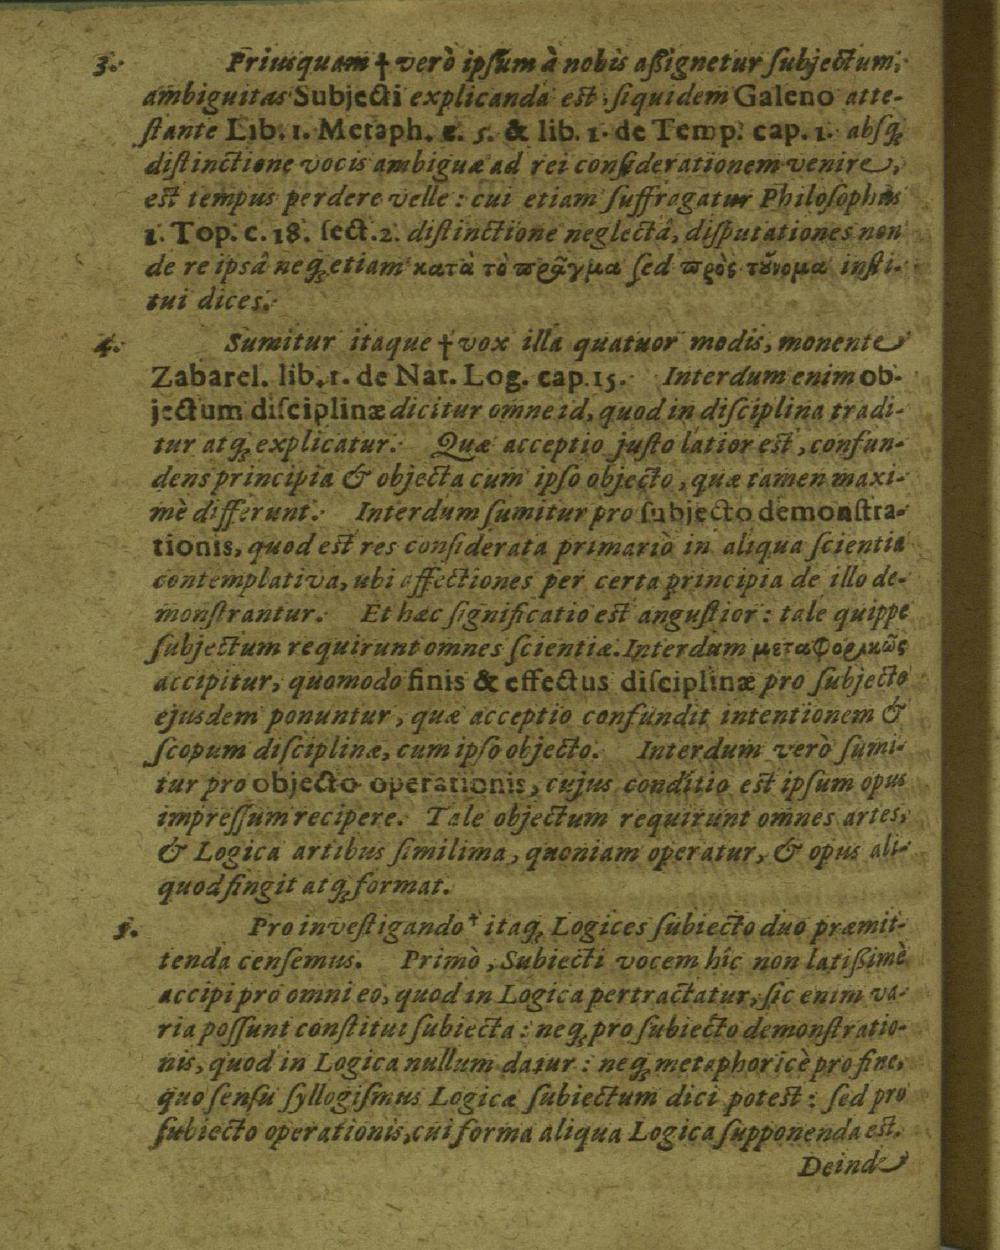 3. Priusquam † verò ipſum à nobis aßignetur ſubjectum,
ambiguitas Subjecti explicanda est, ſiquidem Galeno atte-
ſtante Lib. 1. Metaph. c. 5. & lib. 1. de Temp. cap. 1. abſq;
diſtinctione vocis ambiguæ ad rei conſiderationem venire,
est tempus perdere velle: cui etiam ſuffragatur Philoſophus
1. Top. c. 18. ſect. 2. diſtinctione neglectâ, diſputationes non
de re ipsâ neq; etiam κατὰ τὸ πρᾶγμα ſed πρὸς τοὔνομα inſti-
tui dices.
4. Sumitur itaque † vox illa quatuor modis, monente
Zabarel. lib. 1. de Nat. Log. cap. 15. Interdum enim ob-
jectum diſciplinæ dicitur omne id, quod in diſciplina tradi-
tur atq; explicatur. Quæ acceptio juſto latior est, confun-
dens principia & objecta cum ipſo objecto, quæ tamen maxi-
mè differunt. Interdum ſumitur pro ſubjecto demonſtra-
tionis, quod est res conſiderata primariò in aliqua ſcientia
contemplativa, ubi affectiones per certa principia de illo de-
monſtrantur. Et hæc ſignificatio est anguſtior: tale quippe
ſubjectum requirunt omnes ſcientiæ. Interdum μεταφορικῶς
accipitur, quomodo finis & effectus diſciplinæ pro ſubjecto
ejusdem ponuntur, quæ acceptio confundit intentionem &
ſcopum diſciplinæ, cum ipſo objecto. Interdum verò ſumi-
tur pro objecto operationis, cujus conditio est ipſum opus
impreſſum recipere. Tale objectum requirunt omnes artes,
& Logica artibus ſimilima, quoniam operatur, & opus ali-
quod fingit atq; format.
5. Pro inveſtigando † itaq; Logices ſubiecto duo præmit-
tenda cenſemus. Primò, Subiecti vocem hîc non latißimè
accipi pro omni eo, quod in Logica pertractatur, ſic enim va-
ria poſſunt conſtitui ſubiecta: neq; pro ſubiecto demonſtratio-
nis, quod in Logica nullum datur: neq; metaphoricè pro fine,
quo ſenſu ſyllogiſmus Logicæ ſubiectum dici potest: ſed pro
ſubiecto operationis, cui forma aliqua Logica ſupponenda est.
Deinde